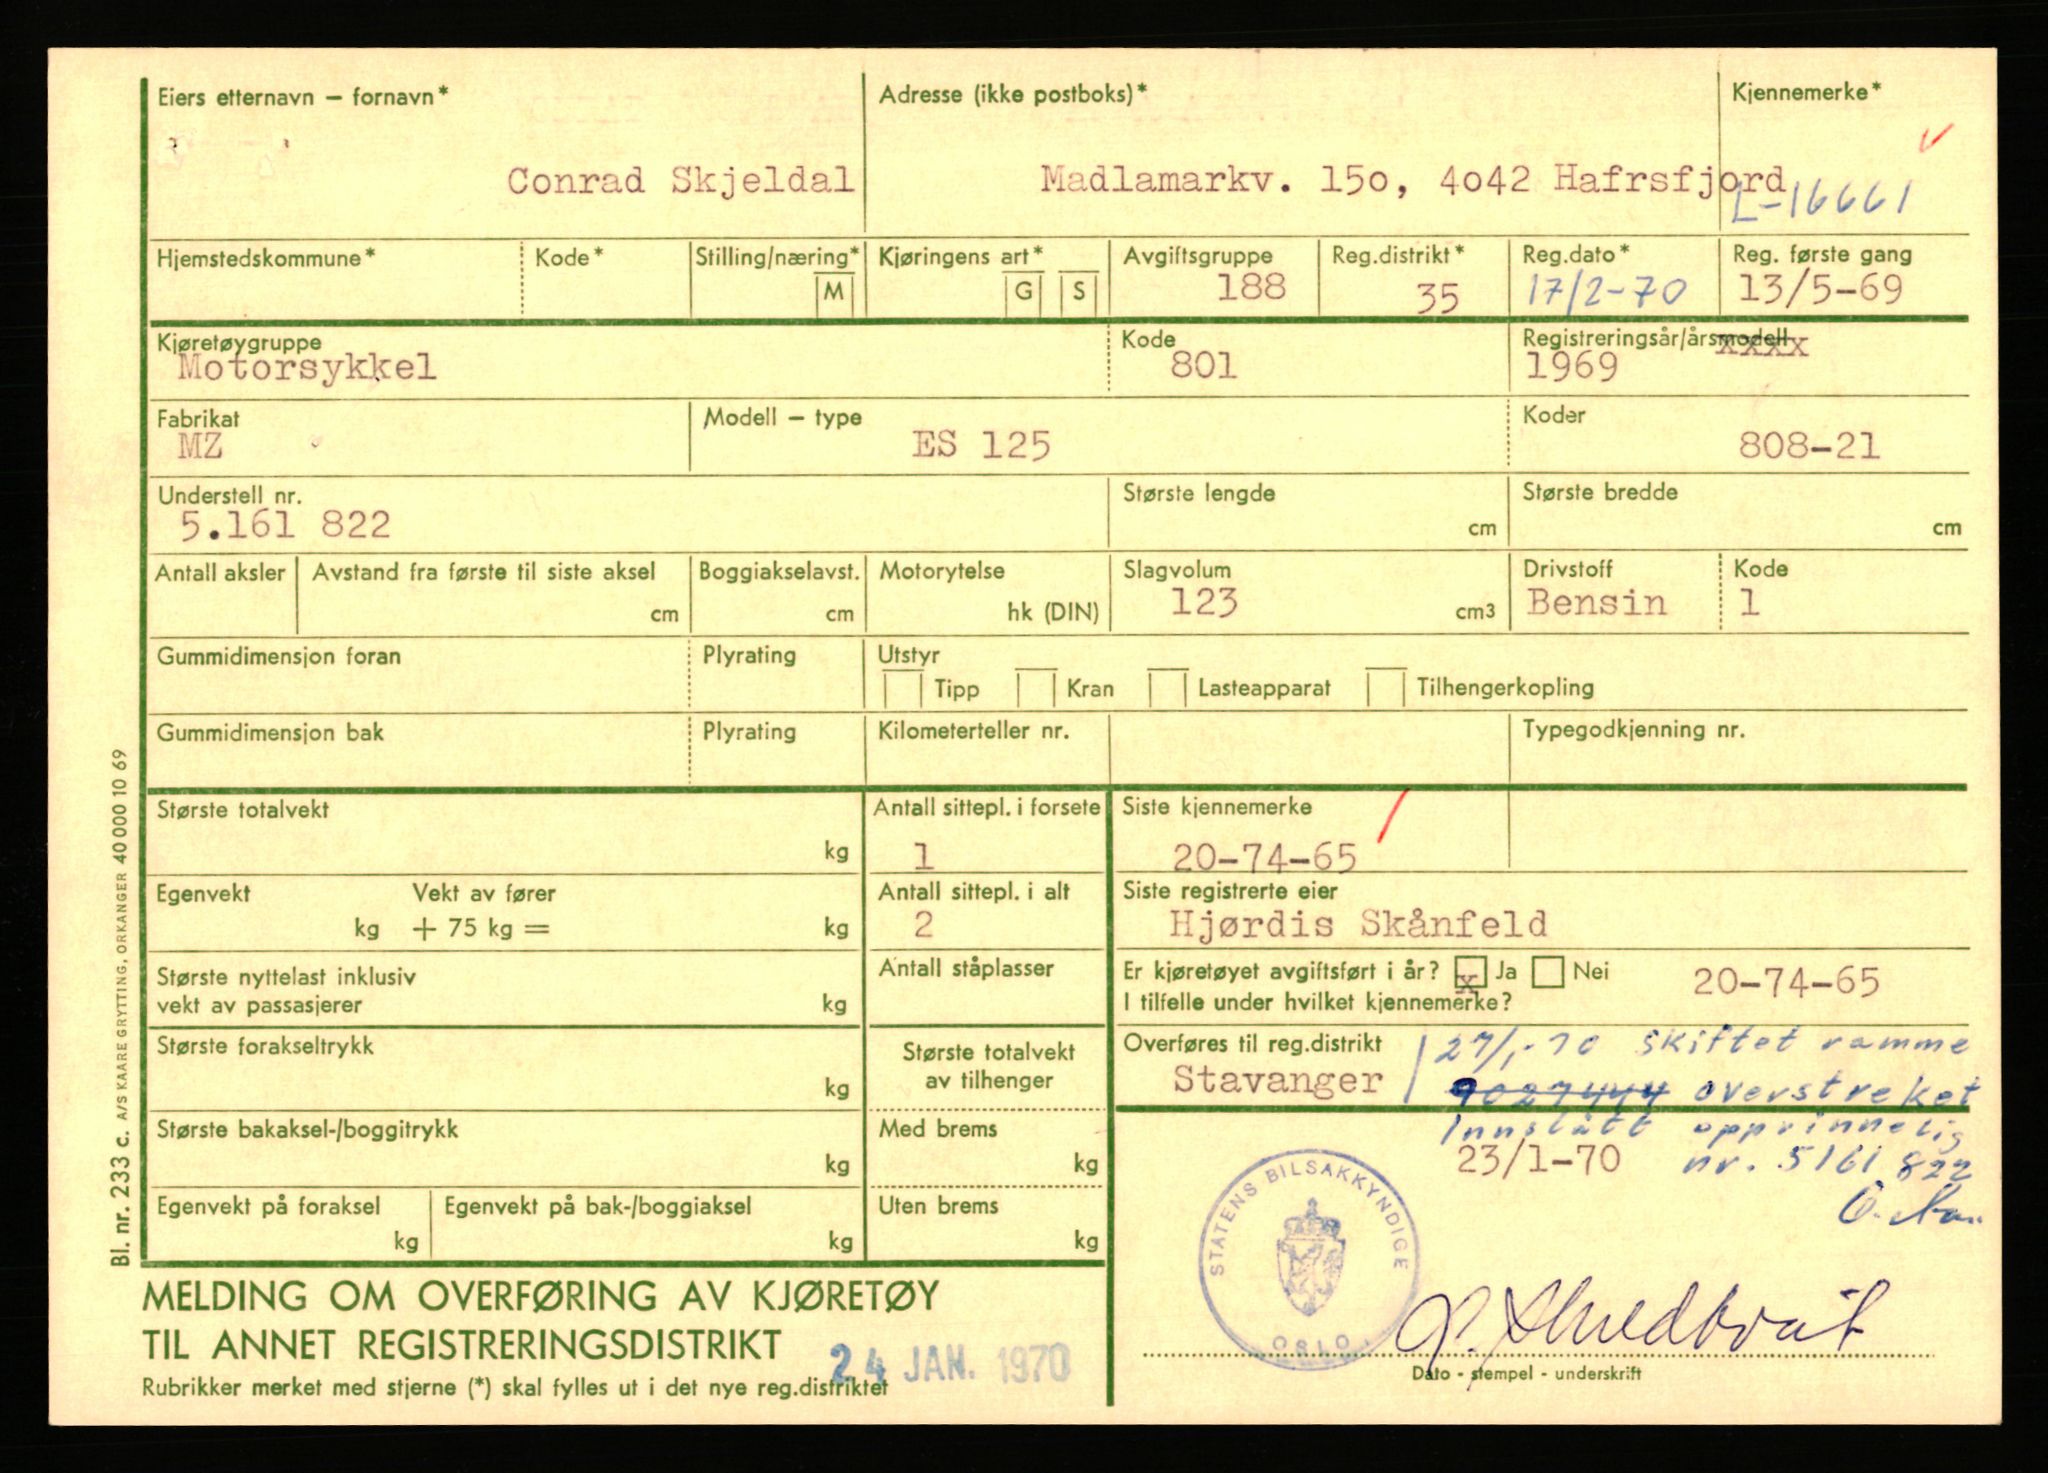 Eiers etternavn – fornavn* Adresse (ikke postboks)* Kjennemerke*
Conrad Skjeldal Madlamarkv. 15o, 4o42 Hafrsfjord
L-16661
Hjemstedskommune* Kode* Stilling/næring* Kjøringens art* Avgiftsgruppe Reg.distrikt* Reg.dato* Reg. første gang
M G S 188 35 17/2-70 13/5-69
Kjøretøygruppe Kode Registreringsår/årsmodell
xxxx
Motorsykkel 801 1969
Fabrikat Modell – type Koder
MZ ES 125 808-21
Understell nr. Største lengde Største bredde
5.161 822 cm cm
Antall aksler Avstand fra første til siste aksel Boggiakselavst. Motorytelse Slagvolum Drivstoff Kode
cm cm hk (DIN) 123 cm3 Bensin 1
Gummidimensjon foran Plyrating Utstyr
Tipp Kran Lasteapparat Tilhengerkopling
Gummidimensjon bak Plyrating Kilometerteller nr. Typegodkjenning nr.
Største totalvekt Antall sittepl. i forsete Siste kjennemerke
kg 1 20-74-65
Egenvekt Vekt av fører Antall sittepl. i alt Siste registrerte eier
kg + 75 kg = kg 2 Hjørdis Skånfeld
Største nyttelast inklusiv Antall ståplasser Er kjøretøyet avgiftsført i år? x Ja Nei 20-74-65
vekt av passasjerer kg I tilfelle under hvilket kjennemerke?
Største forakseltrykk Største totalvekt Overføres til reg.distrikt 27/1-70 skiftet ramme
kg av tilhenger Stavanger 9027444 overstreket
Største bakaksel-/boggitrykk Med brems Innslått opprinnelig
kg kg 23/1-70 nr. 5161 822
Egenvekt på foraksel Egenvekt på bak-/boggiaksel Uten brems
kg kg kg
STATENS BILSAKKYNDIGE
OSLO
MELDING OM OVERFØRING AV KJØRETØY
TIL ANNET REGISTRERINGSDISTRIKT
24 JAN. 1970
Rubrikker merket med stjerne (*) skal fylles ut i det nye reg.distriktet
Dato - stempel - underskrift
Bl. nr. 233 c. A/S KAARE GRYTTING, ORKANGER 40 000 10 69